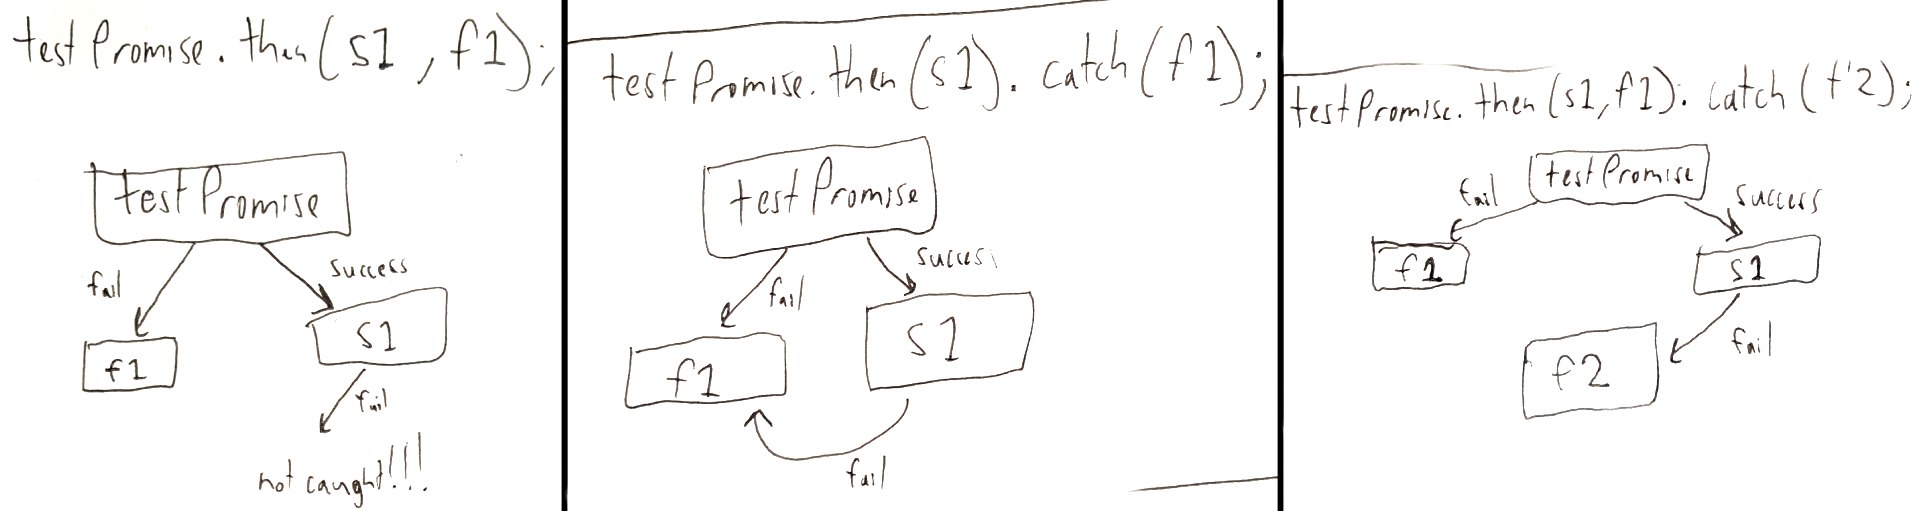 testPromise.then(s1, f1);
testPromise
fail
success
f1
s1
fail
not caught!!!
testPromise.then(s1).catch(f1);
testPromise
fail
success
f1
s1
fail
testPromise.then(s1,f1).catch(f2);
testPromise
fail
success
f1
s1
fail
f2